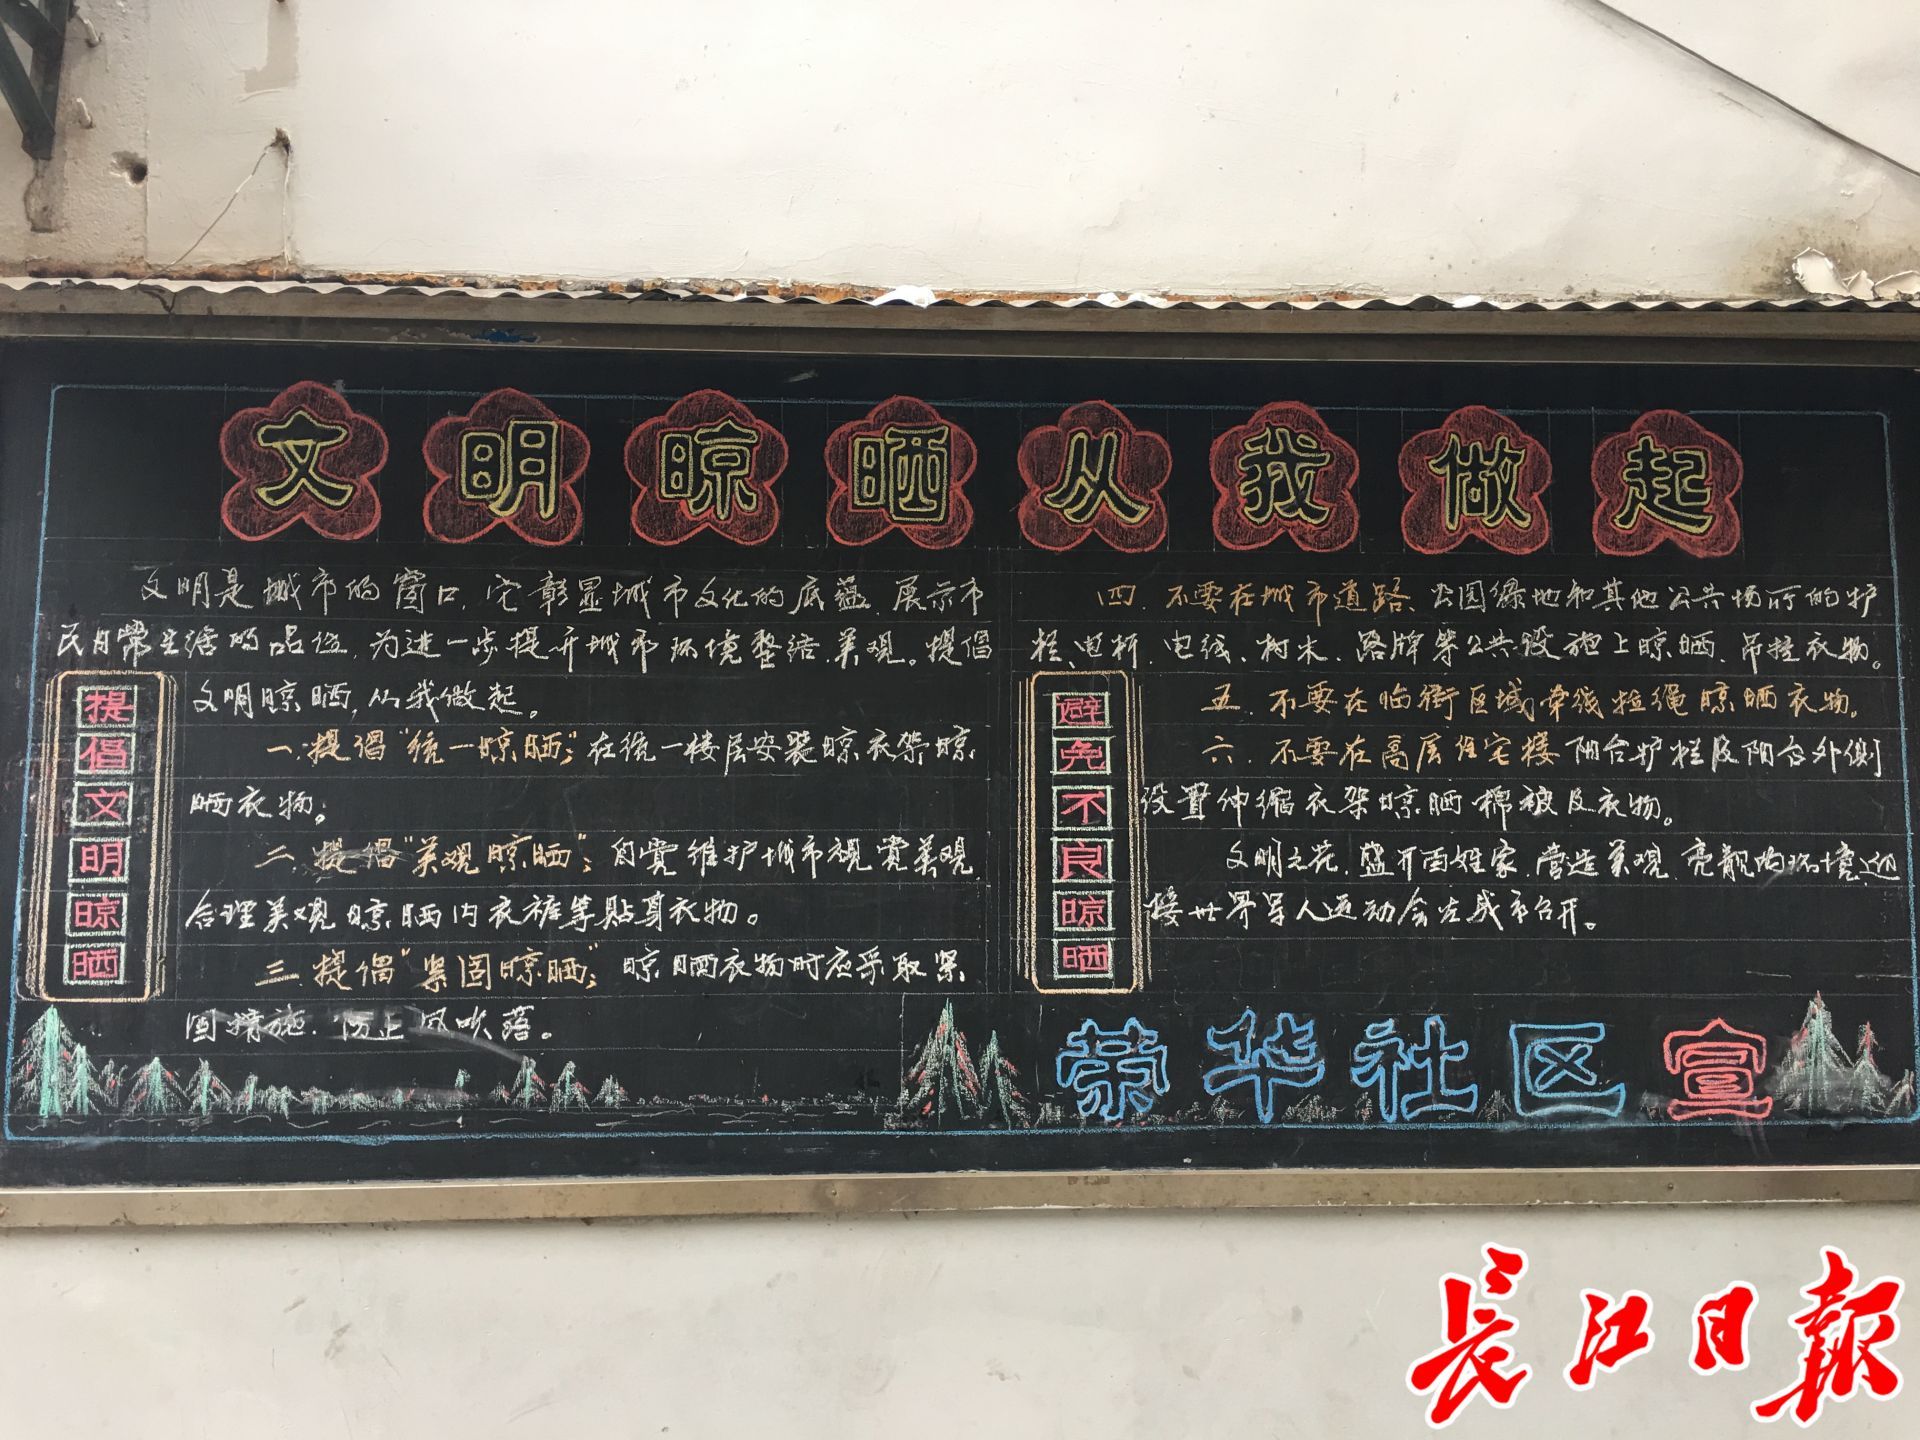 文明晾晒从我做起
文明是城市的窗口,它彰显城市文化的底蕴、展示市
民日常生活的品位,为进一步提升城市环境整洁、美观。提倡
文明晾晒,从我做起。
一、提倡“统一晾晒”;在统一楼层安装晾衣架晾
晒衣物。
二、提倡“美观晾晒”;自觉维护城市视觉美观
合理美观晾晒内衣裤等贴身衣物。
三、提倡“紧固晾晒”;晾晒衣物时应采取紧
固措施、防止风吹落。
提倡文明晾晒
四、不要在城市道路、公园绿地和其他公共场所的护
栏、电杆、电线、树木、路牌等公共设施上晾晒、吊挂衣物。
五、不要在临街区域牵线拉绳晾晒衣物。
六、不要在高层住宅楼阳台护栏及阳台外侧
设置伸缩衣架晾晒棉被及衣物。
文明之花,盛开百姓家,营造美观、亮靓的环境,迎
接世界军人运动会在我市召开。
避免不良晾晒
荣华社区宣
長江日報